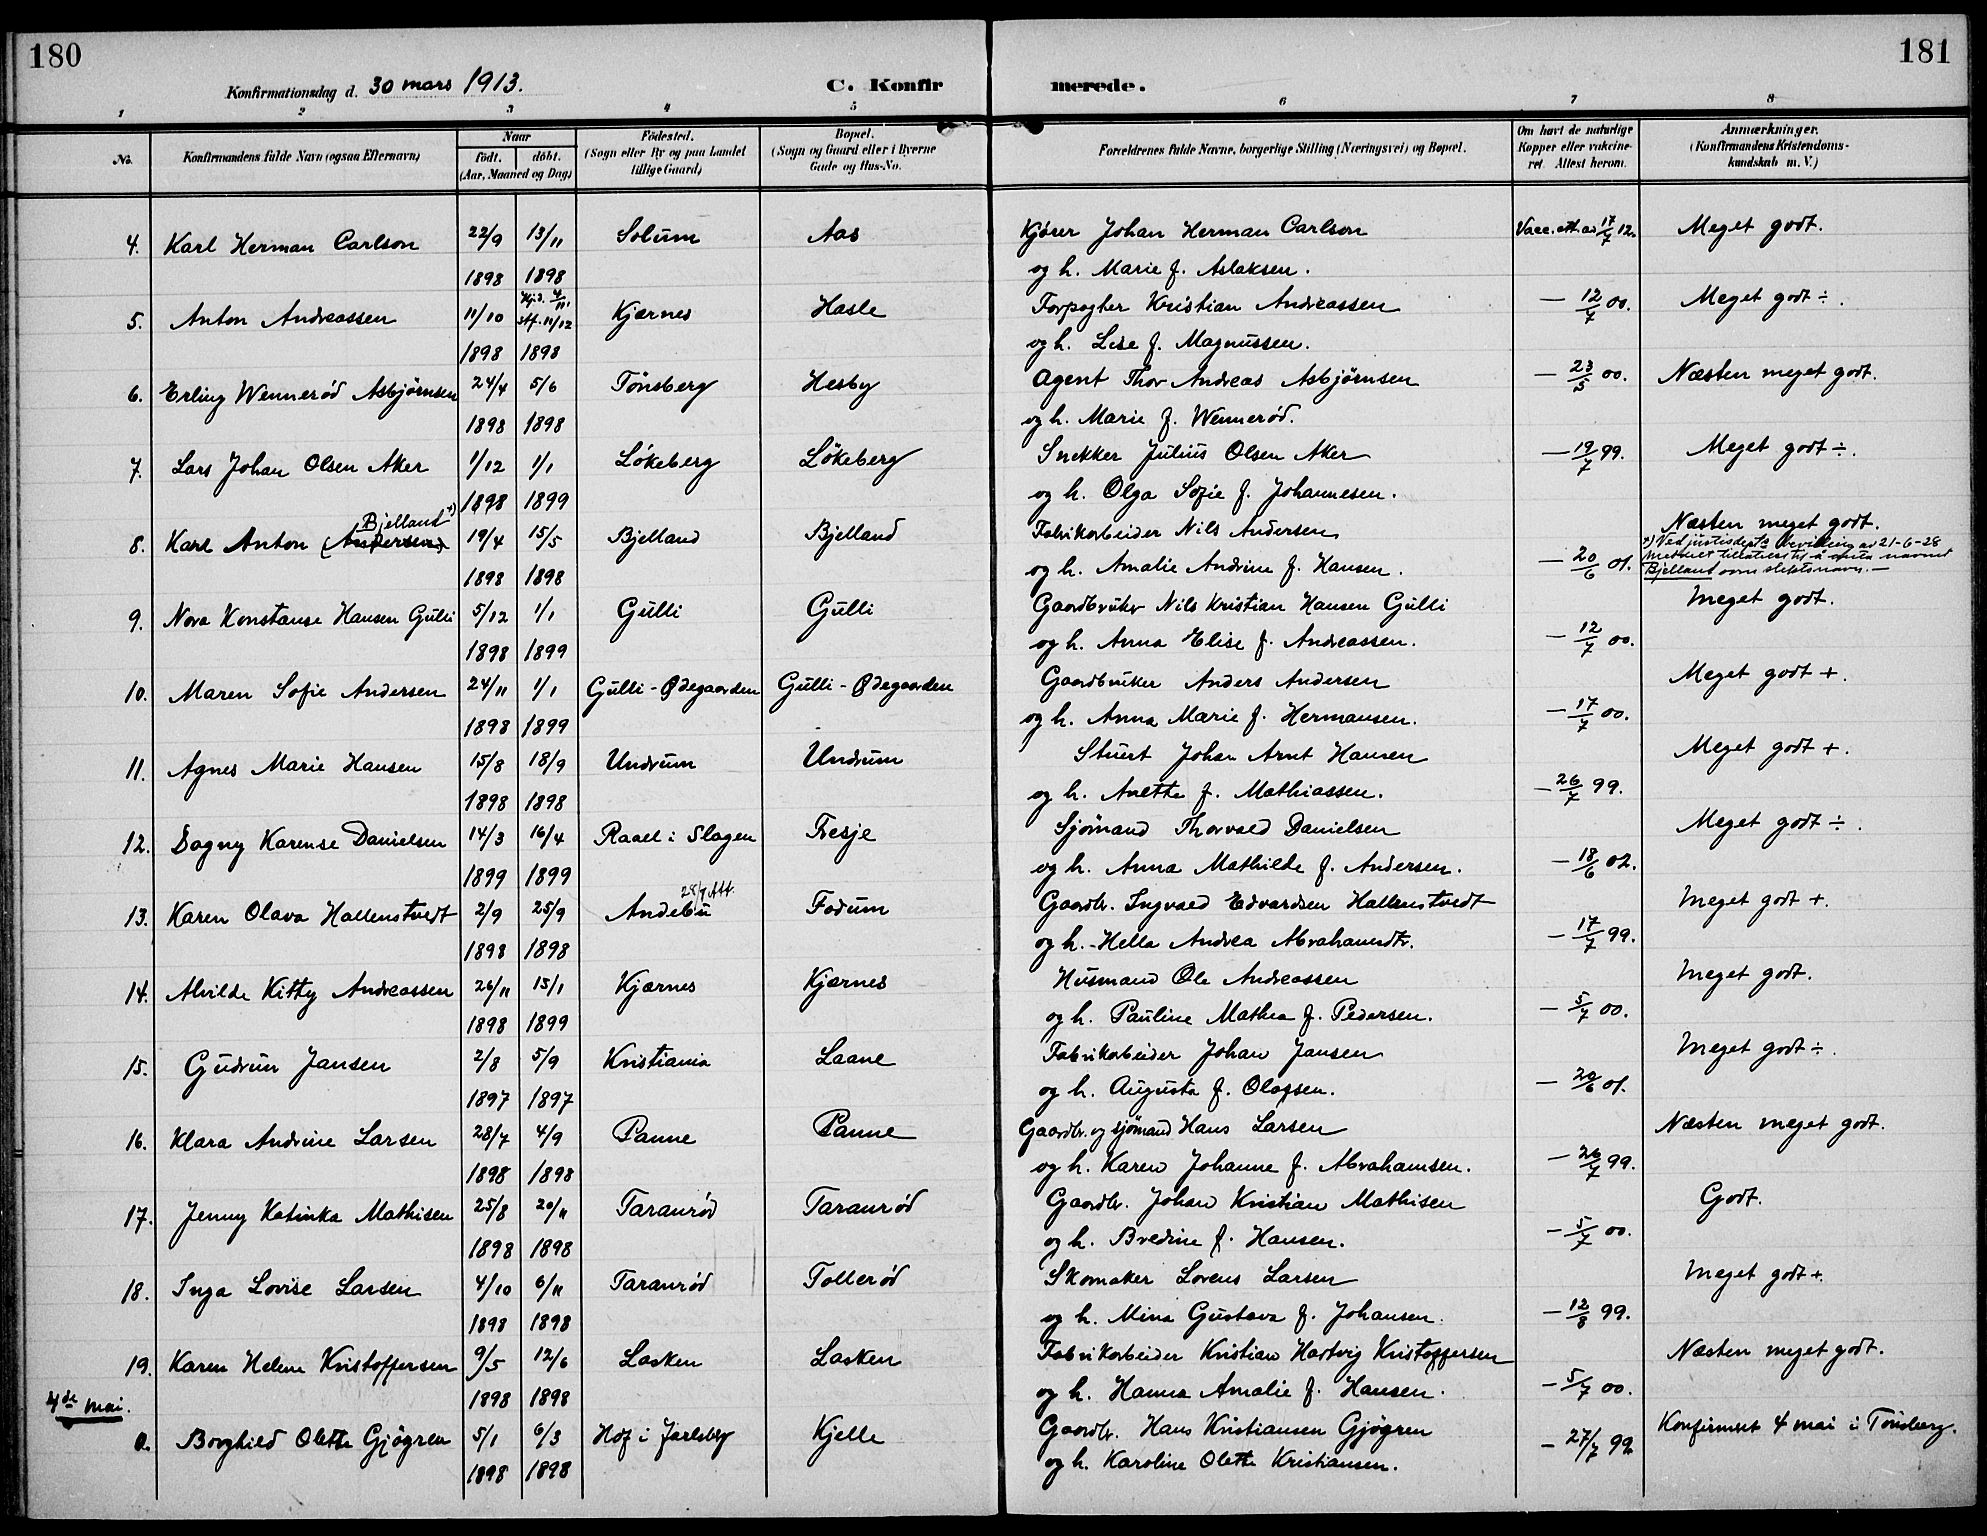 180
181
Konfirmationsdag d. 30 mars 1913.
C. Konfirmerede.
1 2 3 4 5 6 7 8
No. Konfirmandens fulde Navn (ogsaa Efternavn) Naar født. døbt. (Aar, Maaned og Dag) Fødested. (Sogn eller By og paa Landet tillige Gaard) Bopæl. (Sogn og Gaard eller i Byerne Gade og Hus-No. Forældrenes fulde Navne, borgerlige Stilling (Næringsvei) og Bopæl. Om havt de naturlige Kopper eller vaccineret. Attest herom. Anmærkninger. (Konfirmandens Kristendomskundskab m. V.)
4. Karl Herman Carlson 22/9 13/11 Solum Aas Kjører Johan Herman Carlson Vacc. att. av 17/7 12. Meget godt.
1898 1898 og h. Marie f. Aslaksen.
Hjd. 4/11.
5. Anton Andreassen 11/10 stf. 11/12 Kjærnes Hasle Forpagter Kristian Andreassen — 12/7 00. Meget godt ÷.
1898 1898 og h. Lise f. Magnussen.
6. Erling Wennerød Asbjørnsen 24/4 5/6 Tønsberg Hesby Agent Thor Andreas Asbjørnsen — 23/5 00. Næsten meget godt.
1898 1898 og h. Marie f. Wennerød.
7. Lars Johan Olsen Aker 1/12 1/1 Løkeberg Løkeberg Snekker Julius Olsen Aker — 19/7 99. Meget godt ÷.
1898 1899 og h. Olga Sofie f. Johannesen.
Bjelland *)
8. Karl Anton (Andersen) 19/4 15/5 Bjelland Bjelland Fabrikarbeider Nils Andersen Næsten meget godt.
1898 1898 og h. Amalie Andrine f. Hansen. — 20/6 01.
*) Ved justisdepts bevilling av 21-6-28
meddelt tillatelse til å anta navnet
Bjelland som slektsnavn. —
9. Nora Konstanse Hansen Gulli 5/12 1/1 Gulli Gulli Gaardbruker Nils Kristian Hansen Gulli Meget godt.
1898 1899 og h. Anna Elise f. Andreassen. — 12/7 00.
10. Maren Sofie Andersen 24/11 1/1 Gulli-Ødegaarden Gulli-Ødegaarden Gaardbruker Anders Andersen Meget godt +.
1898 1899 og h. Anna Marie f. Hermansen. — 17/7 00.
11. Agnes Marie Hansen 15/8 18/9 Undrum Undrum Stuert Johan Arnt Hansen Meget godt +.
1898 1898 og h. Anette f. Mathiassen. — 26/7 99.
12. Dagny Karense Danielsen 14/3 16/4 Raael i Slagen Fresje Sjømand Thorvald Danielsen Meget godt ÷.
1899 1899 og h. Anna Mathilde f. Andersen. — 18/6 02.
13. Karen Olava Hallenstvedt 2/9 25/9 Andebu Fodum Gaardbr. Ingvald Edvardsen Hallenstvedt Meget godt +.
1898 1898 og h. Hella Andrea Abrahamsdtr. — 17/7 99.
14. Alvilde Kitty Andreassen 26/11 15/1 Kjærnes Kjærnes Husmand Ole Andreassen Meget godt.
1898 1899 og h. Pauline Mathea f. Pedersen. — 5/7 00.
15. Gudrun Jansen 2/8 5/9 Kristiania Laane Fabrikarbeider Johan Jansen Meget godt ÷.
1897 1897 og h. Augusta f. Olassen. — 20/6 01.
16. Klara Andrine Larsen 28/7 4/9 Panne Panne Gaardbr. og sjømand Hans Larsen Næsten meget godt.
1898 1898 og h. Karen Johanne f. Abrahamsen. — 26/7 99.
17. Jenny Katinka Mathisen 25/8 20/11 Taranrød Taranrød Gaardbr. Johan Kristian Mathisen Godt.
1898 1898 og h. Bredine f. Hansen. — 5/7 00.
18. Inga Lovise Larsen 4/10 6/11 Taranrød Tollerød Skomaker Lorens Larsen Meget godt +.
1898 1898 og h. Mina Gustava f. Johansen. — 12/8 99.
19. Karen Helene Kristoffersen 9/5 12/6 Lasken Lasken Fabrikarbeider Kristian Hartvig Kristoffersen Næsten meget godt.
1898 1898 og h. Hanna Amalie f. Hansen. — 5/7 00.
4de mai.
0. Borghild Olette Gjøgren 5/1 6/3 Hof i Jarlsberg Kjelle Gaardbr. Hans Kristiansen Gjøgren — 27/7 99 Konfirmert 4 mai i Tønsberg.
1898 1898 og h. Karoline Olette Kristiansen.